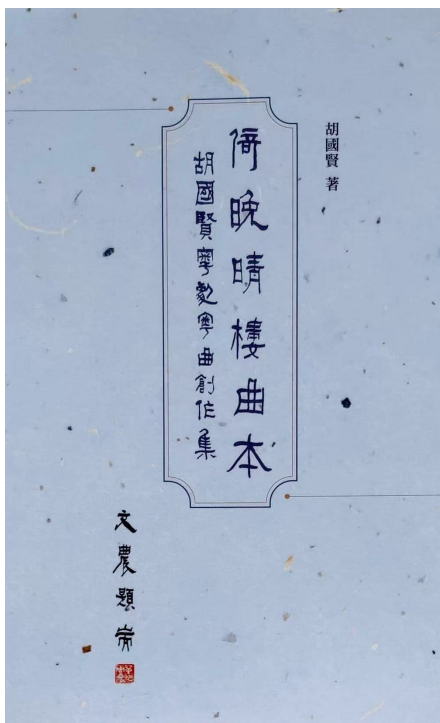 胡國賢 著
倚晚晴樓曲本
胡國賢粵劇粵曲創作集
文農題耑